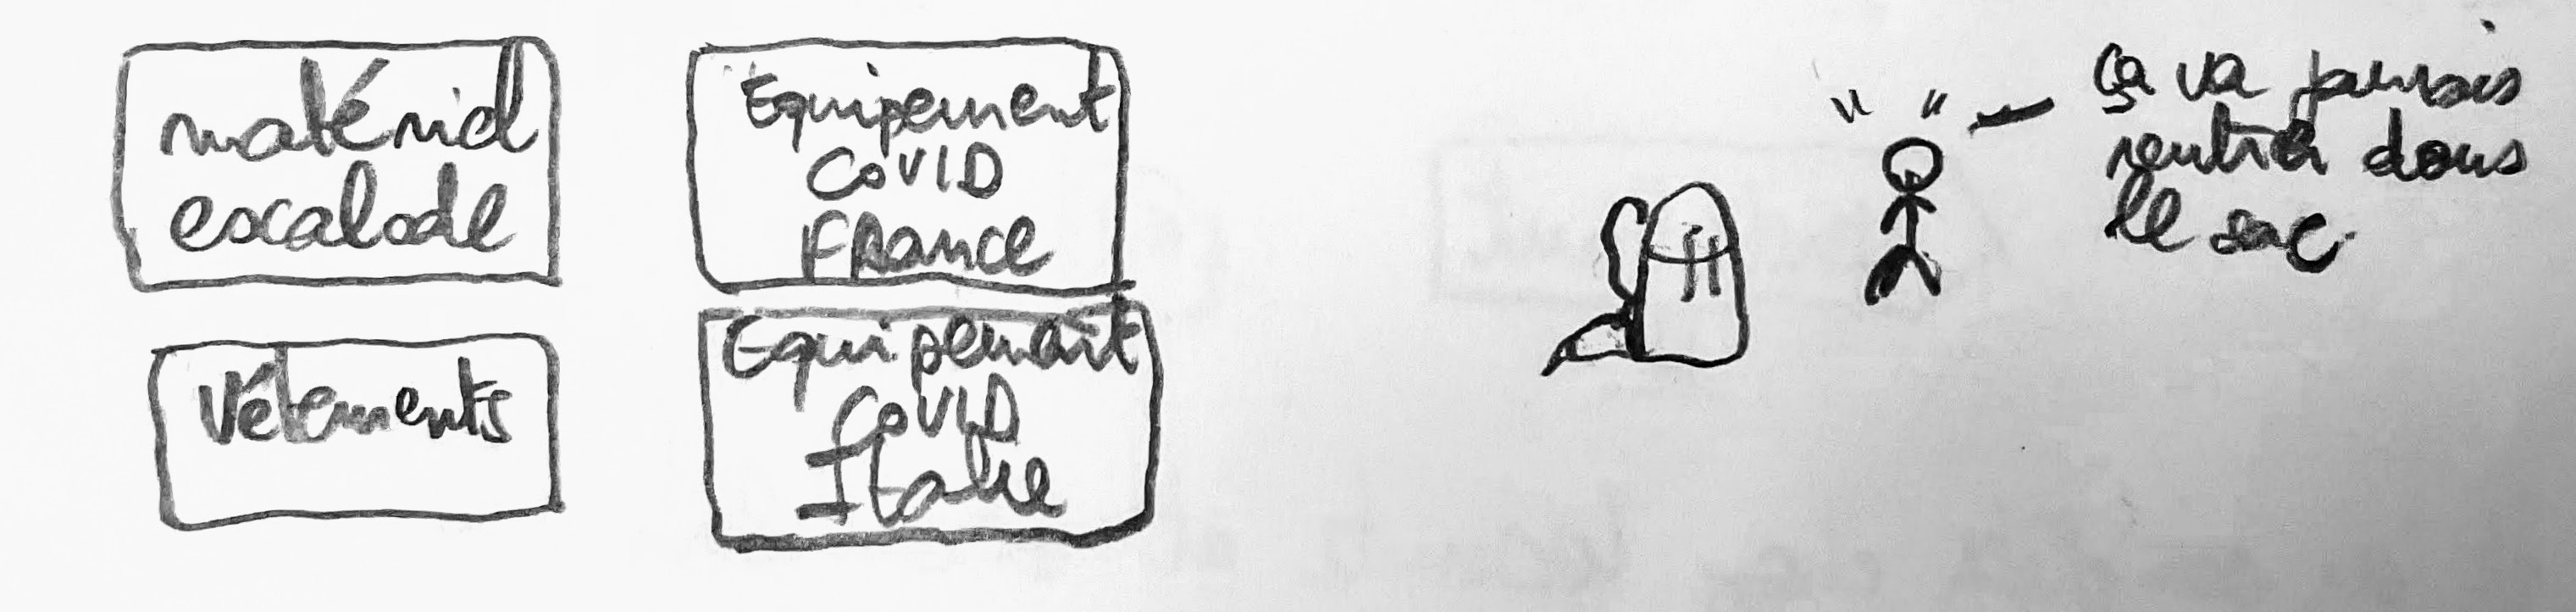 matériel
escalade
Equipement
COVID
FRance
Vétements
Equipement
COVID
Italie
ça va jamais
rentrer dans
le sac